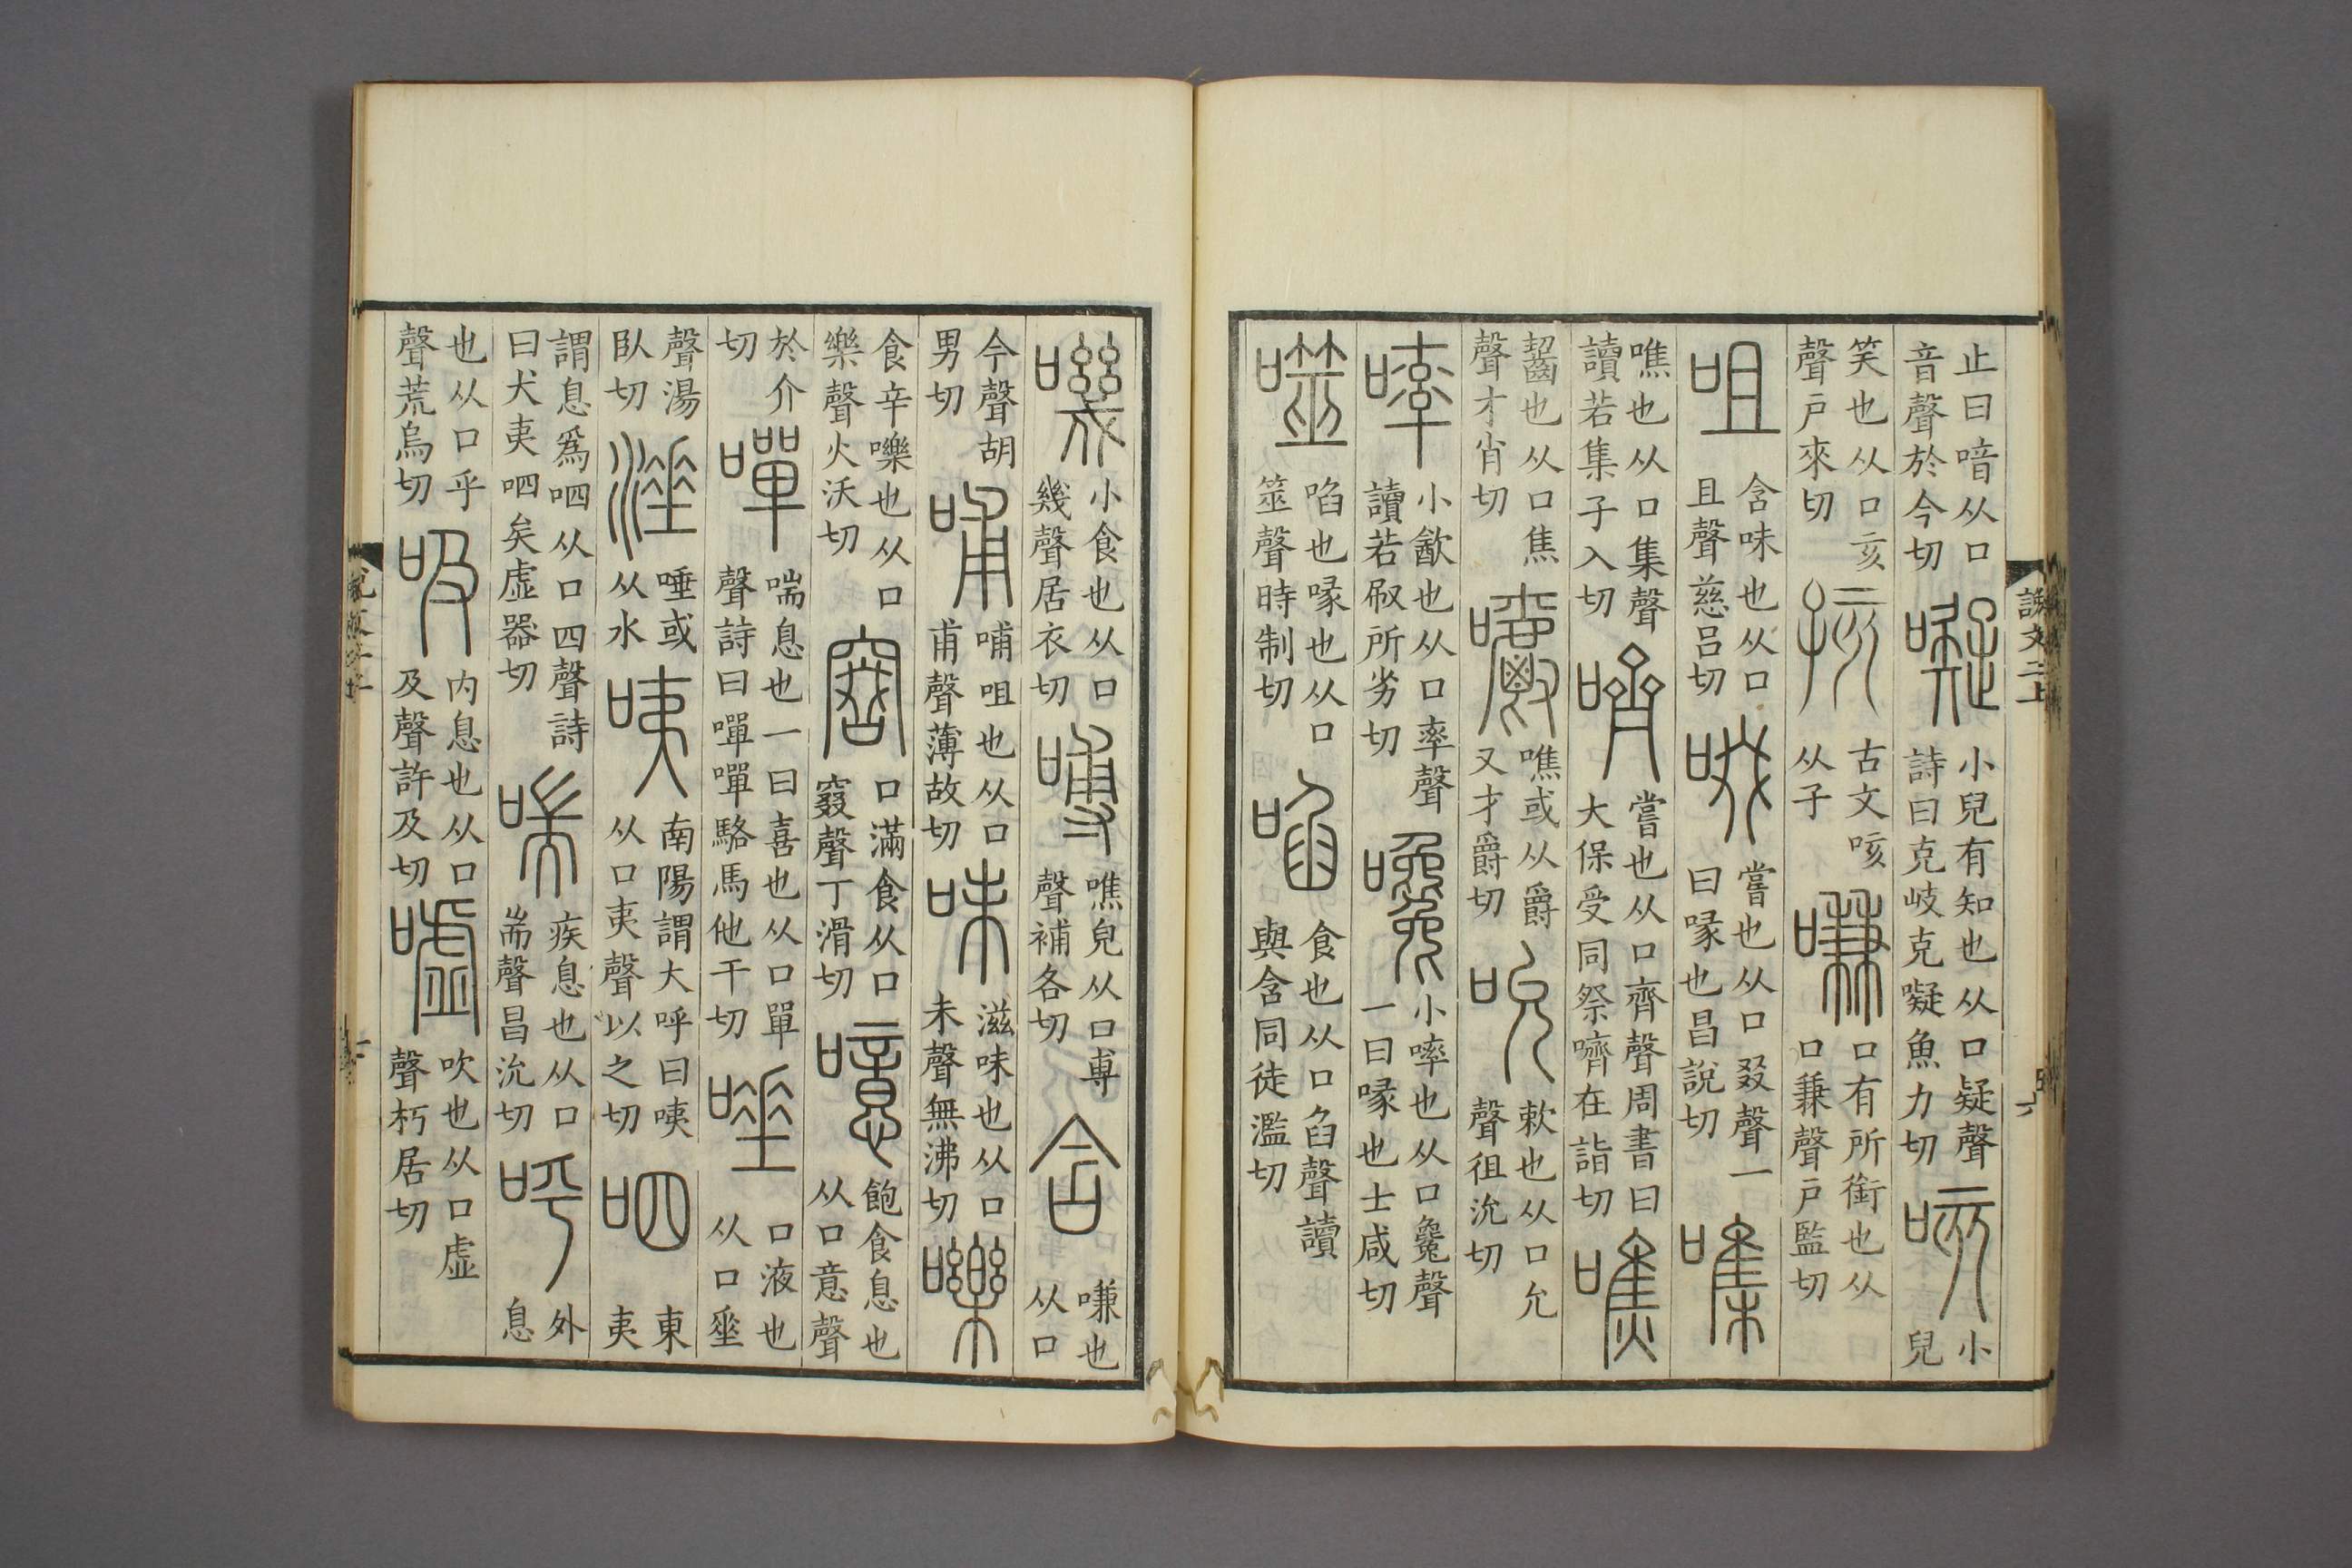 說文二上
止曰喑从口音聲於今切 㘈 小兒有知也从口疑聲詩曰克岐克㘈魚力切 咳 小兒
笑也从口亥聲戶來切 孩 古文咳从子 嗛 口有所銜也从口兼聲戶監切
咀 含味也从口且聲慈呂切 啜 嘗也从口叕聲一曰喙也昌說切 㗱
噍也从口集聲讀若集子入切 嚌 嘗也从口齊聲周書曰大保受同祭嚌在詣切 噍
齧也从口焦聲才肖切 嚼 噍或从爵又才爵切 吮 欶也从口允聲徂沇切
㗕 小㱃也从口率聲讀若㕞所劣切 嚵 小㗕也从口毚聲一曰喙也士咸切
噬 啗也喙也从口筮聲時制切 啗 食也从口臽聲讀與含同徒濫切
嘰 小食也从口幾聲居衣切 噂 噍皃从口尃聲補各切 含 嗛也从口
今聲胡男切 哺 哺咀也从口甫聲薄故切 味 滋味也从口未聲無沸切 嚛
食辛嚛也从口樂聲火沃切 窡 口滿食从口窡聲丁滑切 噫 飽食息也从口意聲
於介切 嘽 喘息也一曰喜也从口單聲詩曰嘽嘽駱馬他干切 唾 口液也从口𡍮
聲湯臥切 涶 唾或从水 咦 南陽謂大呼曰咦从口夷聲以之切 呬 東夷
謂息爲呬从口四聲詩曰犬夷呬矣虛器切 喘 疾息也从口耑聲昌沇切 呼 外息
也从口乎聲荒烏切 吸 內息也从口及聲許及切 嘘 吹也从口虛聲朽居切